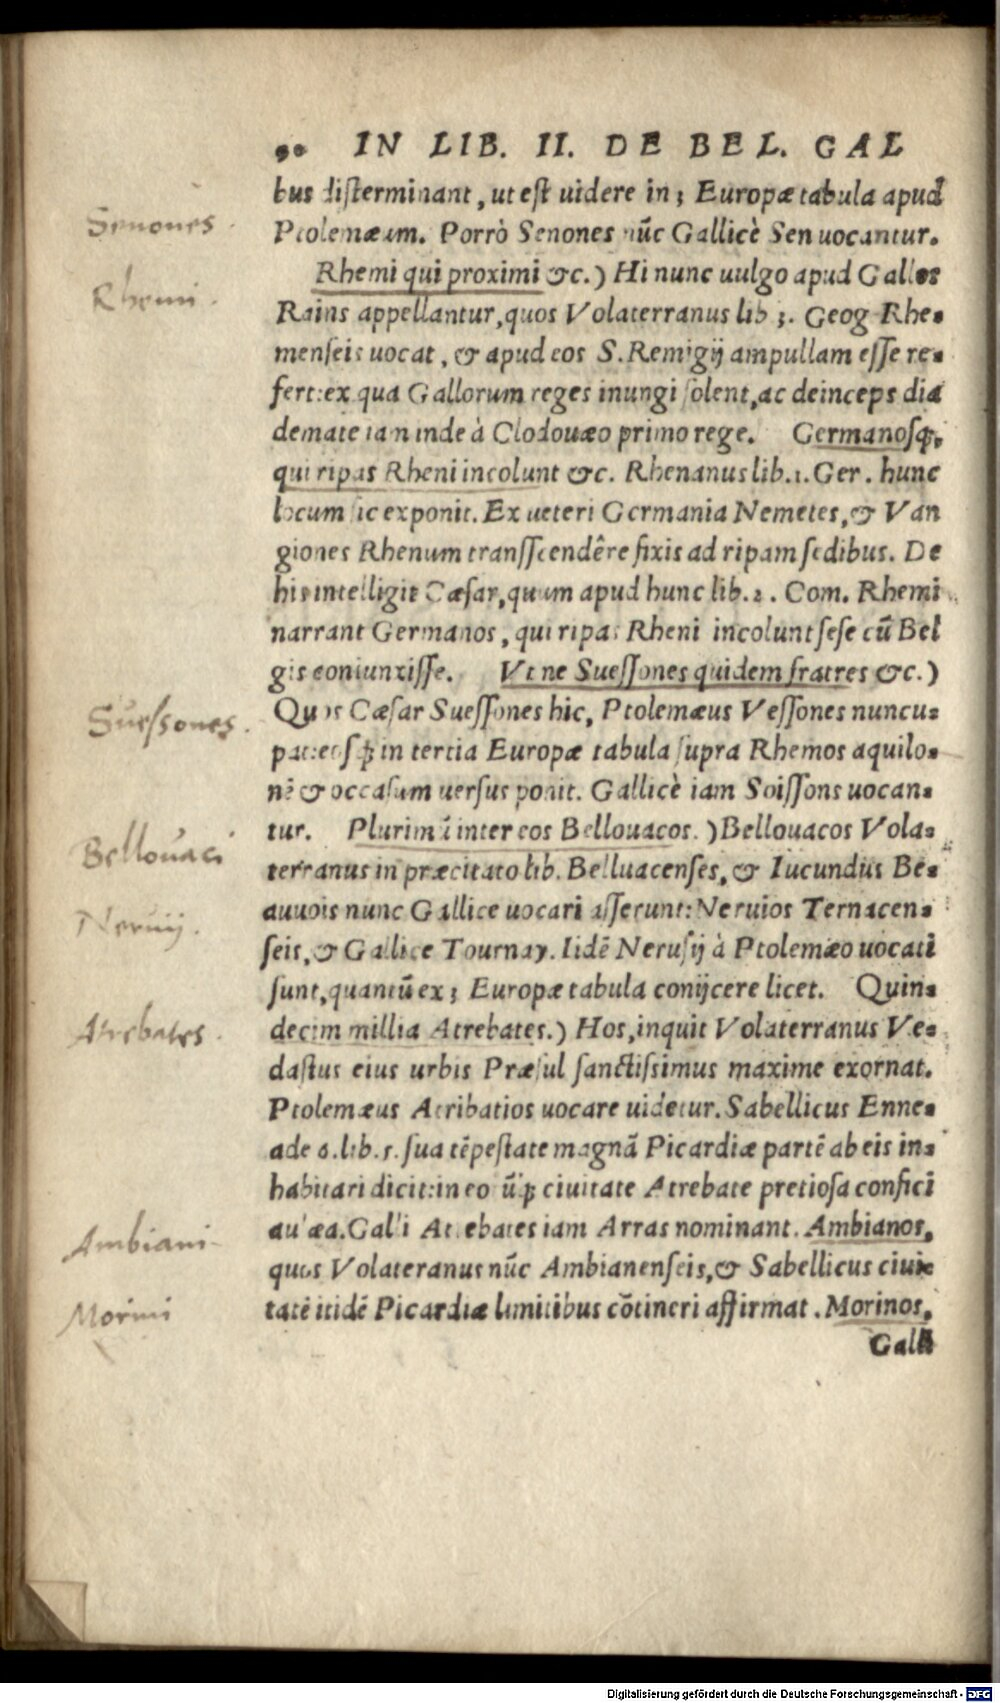 90 IN LIB. II. DE BEL. GAL
bus disterminant, ut est uidere in 3 Europæ tabula apud
Ptolemæum. Porrò Senones nũc Gallicè Sen uocantur.
Rhemi qui proximi &c.) Hi nunc uulgo apud Gallos
Rains appellantur, quos Volaterranus lib 3. Geog Rhe-
menseis uocat, & apud eos S. Remigij ampullam esse re-
fert: ex qua Gallorum reges inungi solent, ac deinceps dia
demate iam inde à Clodouæo primo rege. Germanosq́;
qui ripas Rheni incolunt &c. Rhenanus lib. 1. Ger. hunc
locum sic exponit. Ex ueteri Germania Nemetes, & Van
giones Rhenum transscendêre fixis ad ripam sedibus. De
his intelligit Cæsar, quum apud hunc lib. 2. Com. Rhemi
narrant Germanos, qui ripas Rheni incolunt sese cũ Bel
gis coniunxisse. Vt ne Suessones quidem fratres &c.)
Quos Cæsar Suessones hic, Ptolemæus Vessones nuncu-
pat: eosq́; in tertia Europæ tabula supra Rhemos aquilo-
nẽ & occasum uersus ponit. Gallicè iam Soissons uocan-
tur. Plurimũ inter eos Bellouacos.) Bellouacos Vola-
terranus in præcitato lib. Belluacenses, & Iucundus Be-
auuois nunc Gallice uocari asserunt: Neruios Ternacen-
seis, & Gallice Tournay. Iidẽ Nerusij à Ptolemæo uocati
sunt, quantũ ex 3 Europæ tabula conijcere licet. Quin-
decim millia Atrebates.) Hos, inquit Volaterranus Ve-
dastus eius urbis Præsul sanctissimus maxime exornat.
Ptolemæus Atribatios uocare uidetur. Sabellicus Enne-
ade 6. lib. 5. sua tẽpestate magnã Picardiæ partẽ ab eis in-
habitari dicit: in eo ciuitate Atrebate pretiosa confici
aulæa. Galli Atrebates iam Arras nominant. Ambianos,
quos Volateranus nũc Ambianenseis, & Sabellicus ciui
tatẽ itidẽ Picardiæ limitibus cõtineri affirmat. Morinos,
Galli
Senones
Rhemi.
Suessones.
Bellouaci
Neruij.
Atrebates.
Ambiani
Morini
Digitalisierung gefördert durch die Deutsche Forschungsgemeinschaft - DFG